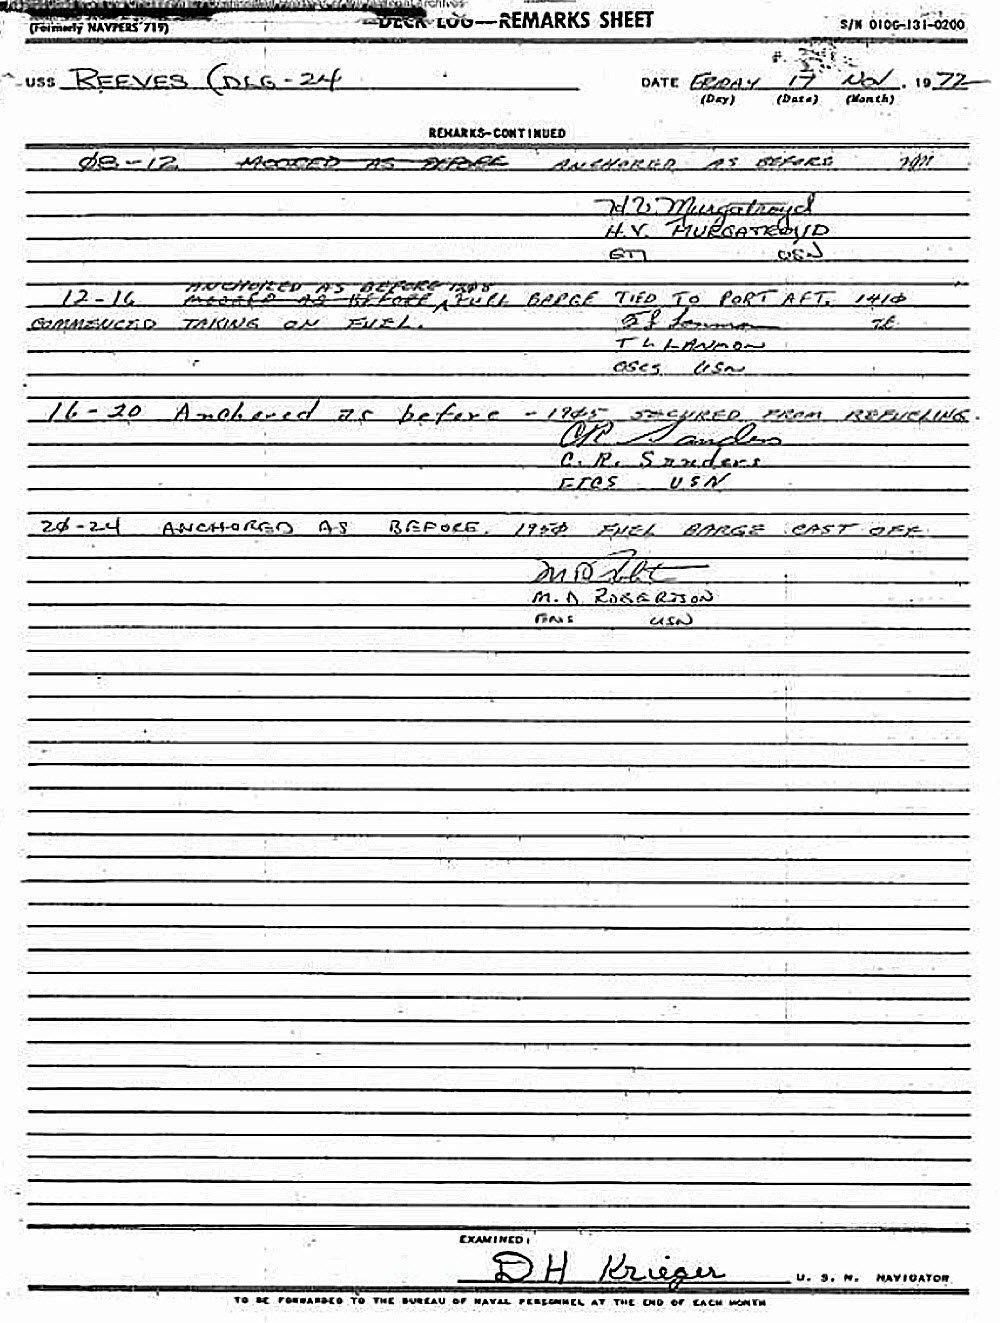 (Formerly NAVPERS 719)
DECK LOG—REMARKS SHEET
S/N 0106-131-0200
USS REEVES (DLG-24
DATE FRIDAY 17 NOV . 1972
(Day) (Date) (Month)
REMARKS-CONTINUED
Ø8-12 MOORED AS BEFORE ANCHORED AS BEFORE
H V Murgatroyd
H.V. MURGATROYD
USN
ANCHORED AS BEFORE 1208
12-16 MOORED AS BEFORE, FUEL BARGE TIED TO PORT AFT. 141Ø
COMMENCED TAKING ON FUEL.
T L Lanmon
T L LANMON
OSCS USN
16-20 Anchored as before - 1945 SECURED FROM REFUELING.
CR Sanders
C. R. Sanders
ETCS USN
2Ø-24 ANCHORED AS BEFORE. 195Ø FUEL BARGE CAST OFF
M. D. ROBERTSON
ENS USN
EXAMINED:
D H Krieger U. S. N. NAVIGATOR
TO BE FORWARDED TO THE BUREAU OF NAVAL PERSONNEL AT THE END OF EACH MONTH